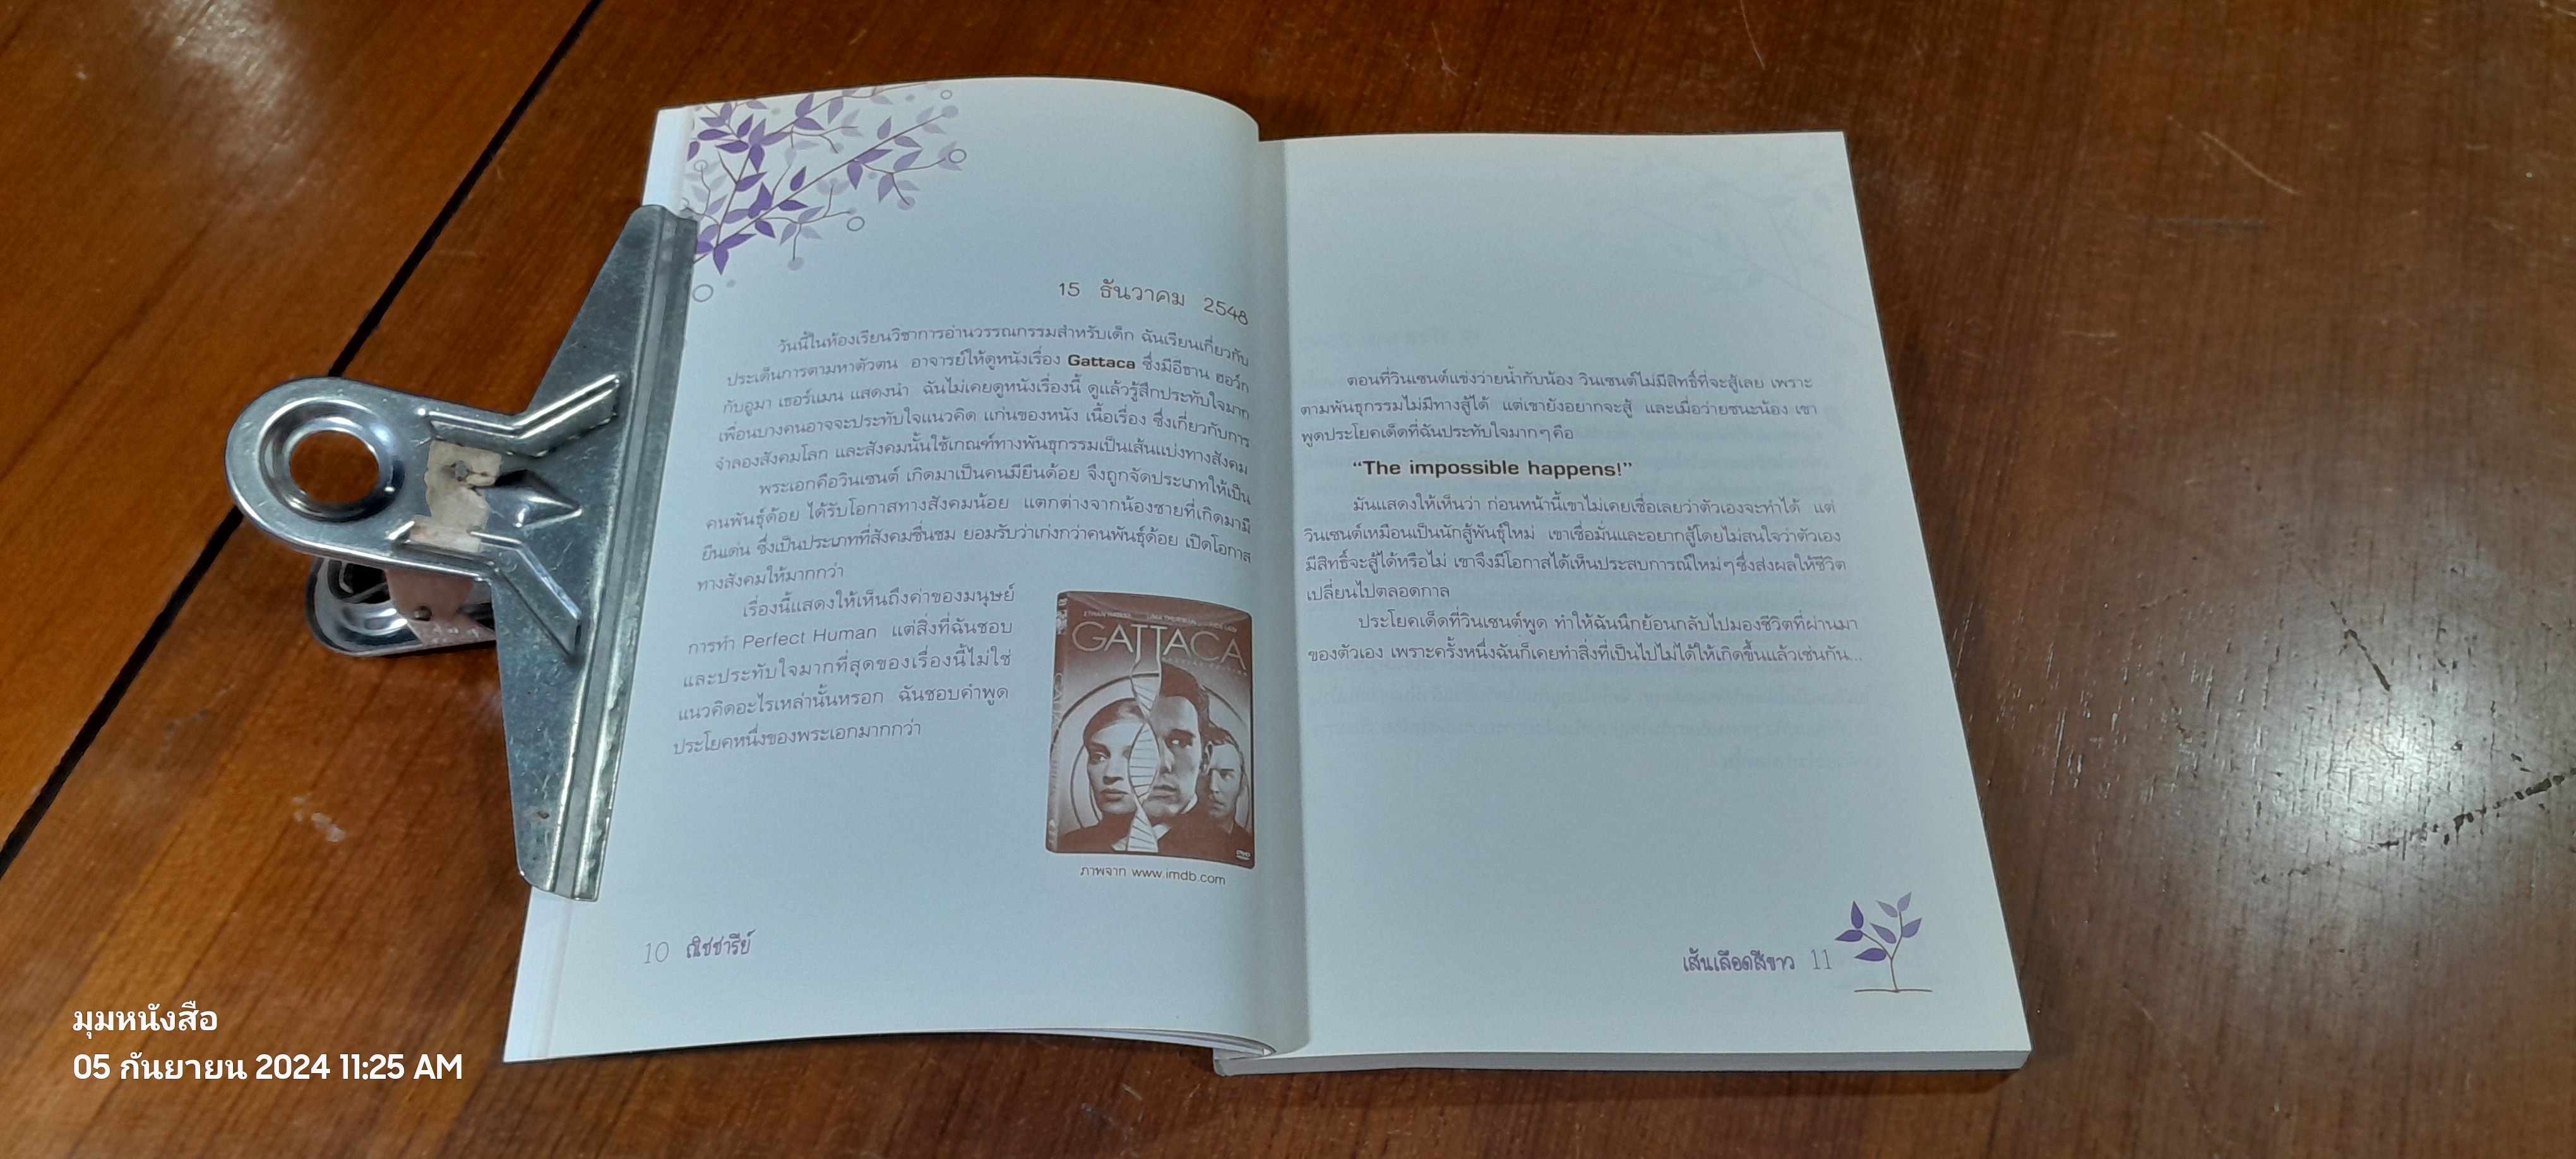 15 ธันวาคม 2548
วันนี้ในห้องเรียนวิชาการอ่านวรรณกรรมสำหรับเด็ก ฉันเรียนเกี่ยวกับ
ประเด็นการตามหาตัวตน อาจารย์ให้ดูหนังเรื่อง Gattaca ซึ่งมีอีธาน ฮอว์ก
กับอูมา เธอร์แมน แสดงนำ ฉันไม่เคยดูหนังเรื่องนี้ ดูแล้วรู้สึกประทับใจมาก
เพื่อนบางคนอาจจะประทับใจแนวคิด แก่นของหนัง เนื้อเรื่อง ซึ่งเกี่ยวกับการ
จำลองสังคมโลก และสังคมนั้นใช้เกณฑ์ทางพันธุกรรมเป็นเส้นแบ่งทางสังคม
พระเอกคือวินเซนต์ เกิดมาเป็นคนมียีนด้อย จึงถูกจัดประเภทให้เป็น
คนพันธุ์ด้อย ได้รับโอกาสทางสังคมน้อย แตกต่างจากน้องชายที่เกิดมามี
ยีนเด่น ซึ่งเป็นประเภทที่สังคมชื่นชม ยอมรับว่าเก่งกว่าคนพันธุ์ด้อย เปิดโอกาส
ทางสังคมให้มากกว่า
เรื่องนี้แสดงให้เห็นถึงค่าของมนุษย์
การทำ Perfect Human แต่สิ่งที่ฉันชอบ
และประทับใจมากที่สุดของเรื่องนี้ไม่ใช่
แนวคิดอะไรเหล่านั้นหรอก ฉันชอบคำพูด
ประโยคหนึ่งของพระเอกมากกว่า
GATTACA
ภาพจาก www.imdb.com
10 ณิชชารีย์
ตอนที่วินเซนต์แข่งว่ายน้ำกับน้อง วินเซนต์ไม่มีสิทธิ์ที่จะสู้เลย เพราะ
ตามพันธุกรรมไม่มีทางสู้ได้ แต่เขายังอยากจะสู้ และเมื่อว่ายชนะน้อง เขา
พูดประโยคเด็ดที่ฉันประทับใจมากๆ คือ
“The impossible happens!”
มันแสดงให้เห็นว่า ก่อนหน้านี้เขาไม่เคยเชื่อเลยว่าตัวเองจะทำได้ แต่
วินเซนต์เหมือนเป็นนักสู้พันธุ์ใหม่ เขาเชื่อมั่นและอยากสู้โดยไม่สนใจว่าตัวเอง
มีสิทธิ์จะสู้ได้หรือไม่ เขาจึงมีโอกาสได้เห็นประสบการณ์ใหม่ๆ ซึ่งส่งผลให้ชีวิต
เปลี่ยนไปตลอดกาล
ประโยคเด็ดที่วินเซนต์พูด ทำให้ฉันนึกย้อนกลับไปมองชีวิตที่ผ่านมา
ของตัวเอง เพราะครั้งหนึ่งฉันก็เคยทำสิ่งที่เป็นไปไม่ได้ให้เกิดขึ้นแล้วเช่นกัน...
เส้นเลือดสีขาว 11
มุมหนังสือ
05 กันยายน 2024 11:25 AM